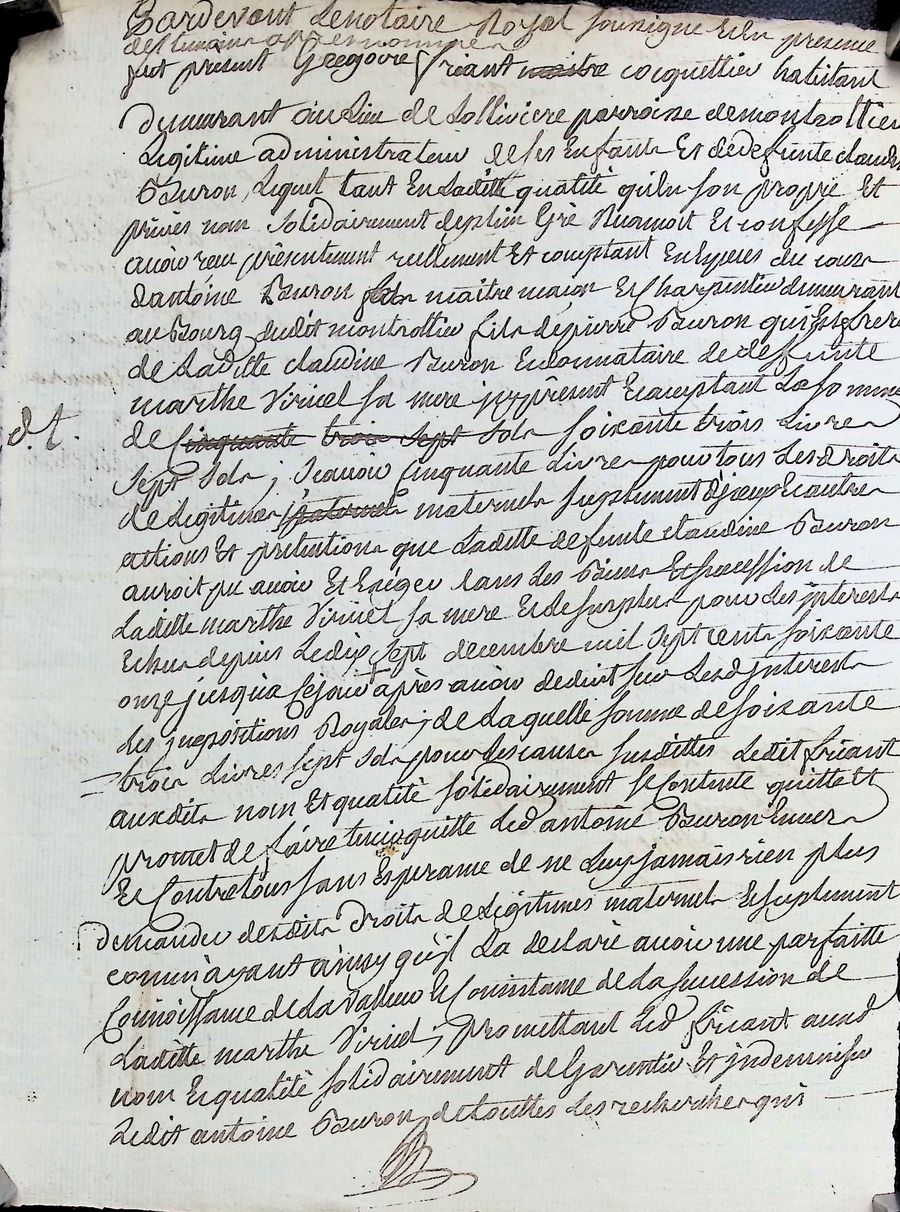 Pardevant Le notaire Royal soussigné Et En presence
des temoins apres nommes
fut présent Gregoire friant maitre cocquettier habitant
demeurant au Lieu de Lolliviere parroisse de montrottier
Legitime administrateur de ses Enfants Et de defunte claudine
Buron, Lequel tant En Laditte qualité qu'En son propre Et
privés nom solidairement de plein Gré Reconnoit Et confesse
avoir reçu présentement reellement Et comptant En Espèces du cours
d'antoine Buron fils maitre maçon Et Charpentier demeurant
au Bourg dudit montrottier fils de pierre Buron qui Est frere
de Laditte claudine Buron Et donnataire de deffunte
marthe Viricel sa mere icy présent Et acceptant La somme
d. t. de cinquante trois sept sols soixante trois Livres
sept sols ; scavoir Cinquante Livres pour tous Les Droits
de Legitimes paternels maternels supplement d'iceux Et autres
actions Et pretentions que Laditte defunte claudine Buron
auroit pu avoir Et Exiger dans Les Biens Et succession de
Laditte marthe Viricel sa mere Et Le surplus pour Les interests
Echus depuis Le dix sept decembre mil sept cents soixante
onze jusqu'a Ce jour après avoir deduit sur Lesd interests
Les impositions Royales ; de Laquelle somme de soixante
trois Livres sept sols pour Les causes susdittes Ledit friant
auxdits nom Et qualité solidairement se Contente quitte Et
promet de faire tenir quitte Led antoine Buron Envers
Et Contre tous sans Esperance de ne Luy jamais rien plus
demander desdits Droits de Legitimes maternels Et suplement
comm'ayant ainsy qu'il La declaré avoir une parfaitte
Connoissance de La Valleur Et Consistance de La succession de
Laditte marthe Viricel ; promettant Led friant auxd
nom Et qualité solidairement de Garentir Et indemniser
Ledit antoine Buron de touttes Les recherches qui